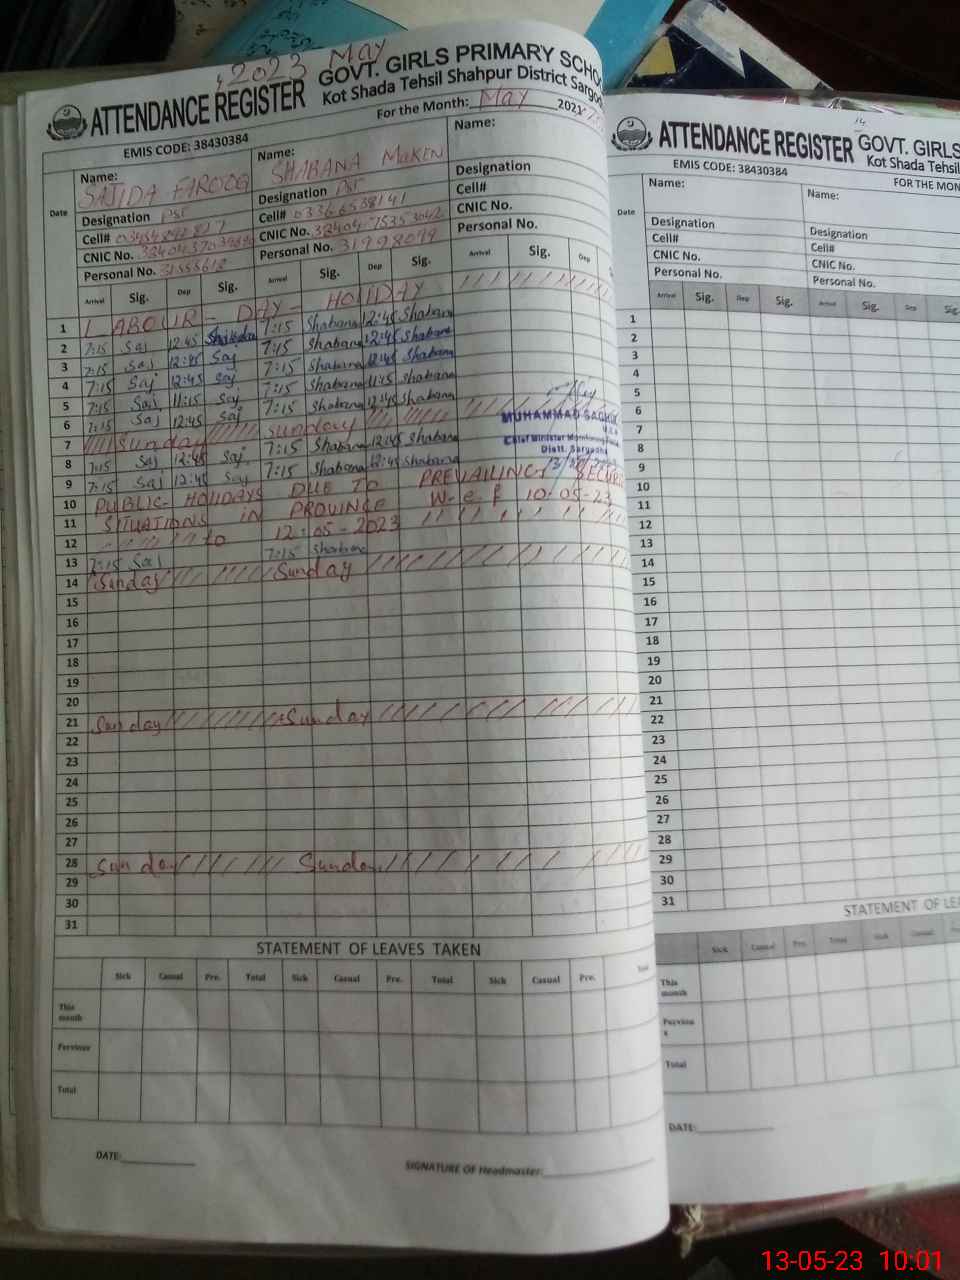 2023 May
ATTENDANCE REGISTER
GOVT. GIRLS PRIMARY SCHO
Kot Shada Tehsil Shahpur District Sargo
For the Month: May 202
EMIS CODE: 38430384
Date
Name: SAJIDA FAROOQ
Name: SHABANA MAKEN
Name:
Designation PST
Designation PST
Designation
Cell#
Cell# 03366538141
Cell#
CNIC No.
CNIC No.
CNIC No.
Personal No. 31555612
Personal No. 31998079
Personal No.
Arrival Sig. Dep Sig. Arrival Sig. Dep Sig. Arrival Sig. Dep
1 LABOUR - DAY - HOLIDAY
2 7:15 Saj 12:45 7:15 Shabana 12:45 Shabana
3 7:15 Saj 12:45 Saj 7:15 Shabana 12:45 Shabana
4 7:15 Saj 12:45 Saj 7:15 Shabana 12:45 Shabana
5 7:15 Saj 11:15 Saj 7:15 Shabana 11:45 Shabana
6 7:15 Saj 12:45 Saj 7:15 Shabana 12:45 Shabana
7 Sunday Sunday
8 7:15 Saj 12:45 Saj 7:15 Shabana 12:45 Shabana
9 7:15 Saj 12:45 Saj 7:15 Shabana 12:45 Shabana
MUHAMMAD
Chief Minister Monitoring
Distt. Sargodha
10 PUBLIC- HOLIDAYS DUE TO PREVAILING
11 SITUATIONS IN PROVINCE W.e.f 10-05-23
12 to 12-05-2023
13 7:15 Saj 7:15 Shabana
14 Sunday Sunday
15
16
17
18
19
20
21 Sunday Sunday
22
23
24
25
26
27
28 Sunday Sunday
29
30
31
STATEMENT OF LEAVES TAKEN
Sick Casual Pre. Total Sick Casual Pre. Total Sick Casual Pre. Total
This month
Perviour
Total
DATE:
SIGNATURE OF Headmaster:
ATTENDANCE REGISTER GOVT. GIRLS
Kot Shada Tehsil
EMIS CODE: 38430384
FOR THE MON
Date
Name:
Name:
Designation
Designation
Cell#
Cell#
CNIC No.
CNIC No.
Personal No.
Personal No.
Arrival Sig. Dep Sig. Arrival Sig. Dep Sig.
1
2
3
4
5
6
7
8
9
10
11
12
13
14
15
16
17
18
19
20
21
22
23
24
25
26
27
28
29
30
31
STATEMENT OF LE
Sick Casual Pre. Total Sick Casual
This month
Perviou s
Total
DATE:
13-05-23 10:01